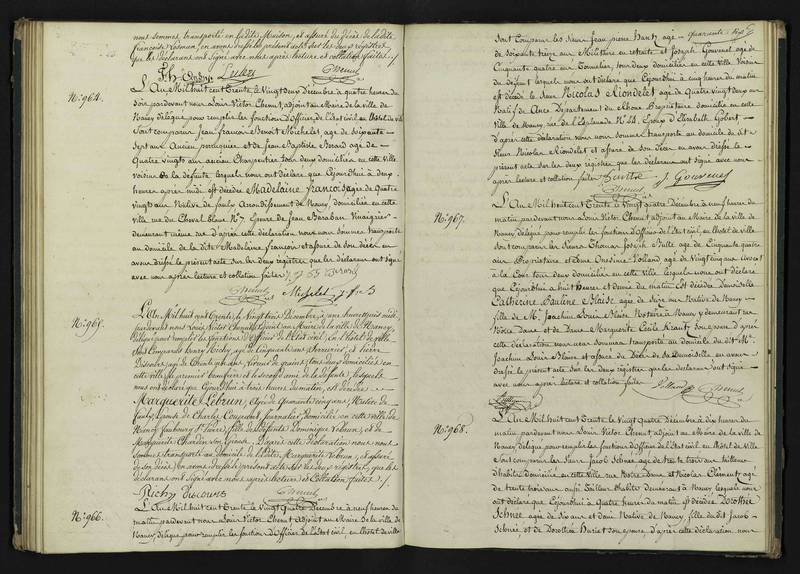 nous sommes transporté en ladite Maison, et assuré du décès de ladite
françoise Losman, en avons dressé le présent acte sur les deux registres
que les déclarans ont Signé avec nous après lecture et collation faites ./.
Chenut
N°. 964.
L'An Mil huit cent Trente, le Vingt deux Décembre à quatre heures du
soir pardevant nous Louis Victor Chenut, adjoint au Maire de la ville de
Nancy délégué pour remplir les fonctions d'Officier de l'état civil en l'hôtel de ville
Sont comparus Jean francois Benoit Michelet agé de soixante-
sept ans Ancien perruquier et de Jean Baptiste Berard agé de
Quatre vingt ans ancien Charpentier tous deux domiciliés en cette Ville
voisins de la défunte lesquels nous ont déclaré que Cejourd'hui à deux
heures après midi est décédée Madelaine François agée de quatre
vingt ans Native de pouly Arrondissement de Nancy, domiciliée en cette
ville rue du Cheval blanc N° 7. Epouse de Jean Baraban Vinaigrier
demeurant même rue d'après cette déclaration nous nous sommes transportés
au domicile de la dite Madelaine François et assuré de son décès en
avons dressé le présent acte sur les deux registres que les déclarans ont signé
avec nous après lecture et collation faites
Chenut Michelet
N°. 965.
L'An Mil huit cent Trente, le Vingt trois Décembre, à une heure après midi,
pardevant nous Louis Victor Chenut adjoint au Maire de la Ville de Nancy,
délégué pour remplir les fonctions d'Officier de l'état civil, en l'hôtel de ville
Sont Comparus Henry Richy, agé de Cinquante ans Serrurier, et pierre
Discours, agé de Trente ans, tous deux domiciliés en
cette ville, le premier beau frere et le second ami de la défunte, lesquels
nous ont déclaré que Cejourd'hui à trois heures du matin, est décédée
Marguerite Lebrun, Agée de Quarante cinq ans, Native de
pouly, Epouse de Charles Coussedent, Journalier, domicilié en cette ville de
Nancy faubourg St Pierre, fille de défunts Dominique Lebrun, et de
Marguerite Chardin son Epouse. D'après cette déclaration nous nous
sommes transportés au domicile de ladite Marguerite Lebrun, et assuré
de son décès, en avons dressé le présent acte sur les deux registres, que les
déclarans ont Signé avec nous après lecture et Collation faites ./.
Richy Discours Chenut
N°. 966.
L'An Mil huit cent Trente le Vingt quatre Décembre à neuf heures du
matin pardevant nous Louis Victor Chenut Adjoint au Maire de la ville de
Nancy, délégué pour remplir les fonctions d'Officier de l'état civil, en l'hôtel de ville
Sont Comparus les Sieurs Jean pierre Hautz agé
de soixante treize ans Militaire en retraite et Joseph Gouvenel agé de
Cinquante quatre ans Tonnelier, tous deux domiciliés en cette Ville Voisins
du défunt lesquels nous ont déclaré que Cejourd'hui à cinq heures du matin
est décédé le Sieur Nicolas Riondelet agé de Quatre vingt deux ans
Natif de Anse Département du Rhône Propriétaire domicilié en cette
Ville de Nancy, rue de l'Esplanade N° 44. Epoux d'Elisabeth Gobert
D'après cette déclaration nous nous sommes transportés au domicile du dit
Sieur Nicolas Riondelet et assuré de son décès en avons dressé le
présent acte sur les deux registres que les déclarans ont signé avec nous
après lecture et collation faites
Chenut J. Gouvenel
N°. 967.
L'An Mil huit cent Trente le Vingt quatre Décembre à neuf heures du
matin pardevant nous Louis Victor Chenut adjoint au Maire de la ville de
Nancy délégué pour remplir les fonctions d'Officier de l'état civil en l'hôtel de ville
sont comparus les Sieurs Thomas Joseph agé de Cinquante quatre
ans Propriétaire et Onésime Volland agé de vingt cinq ans avocat
à la Cour tous deux domiciliés en cette ville lesquels nous ont déclaré
que Cejourd'hui à huit heures et demie du matin est décédée Demoiselle
Catherine Pauline Blaise agée de seize ans Native de Nancy
fille de Mr. Joachim Louis Blaise Notaire à Nancy y demeurant rue
Notre Dame et de Dame Marguerite Cécile Krantz son Epouse d'après
cette déclaration nous nous sommes transportés au domicile du dit Mr.
Joachim Louis Blaise et assuré du décès de sa Demoiselle en avons
dressé le présent acte sur les deux registres que les déclarans ont signé
avec nous après lecture et collation faites
Volland Chenut
N°. 968.
L'An Mil huit cent Trente le Vingt quatre Décembre à dix heures du
matin pardevant nous Louis Victor Chenut adjoint au Maire de la ville de
Nancy délégué pour remplir les fonctions d'Officier de l'état civil en l'hôtel de Ville
Sont comparus les Sieurs Jacob Schnee agé de trente trois ans tailleur
d'habits domicilié en cette Ville rue Notre Dame et Nicolas Clément agé
de trente trois ans aussi Tailleur d'habits demeurant à Nancy lesquels nous
ont déclaré que Cejourd'hui à Quatre heures du matin est décédée Dorothée
Schnee agée de Six ans et demi Native de Nancy, fille du dit Jacob
Schnee, et de Dorothée Huriet son épouse, d'après cette déclaration nous